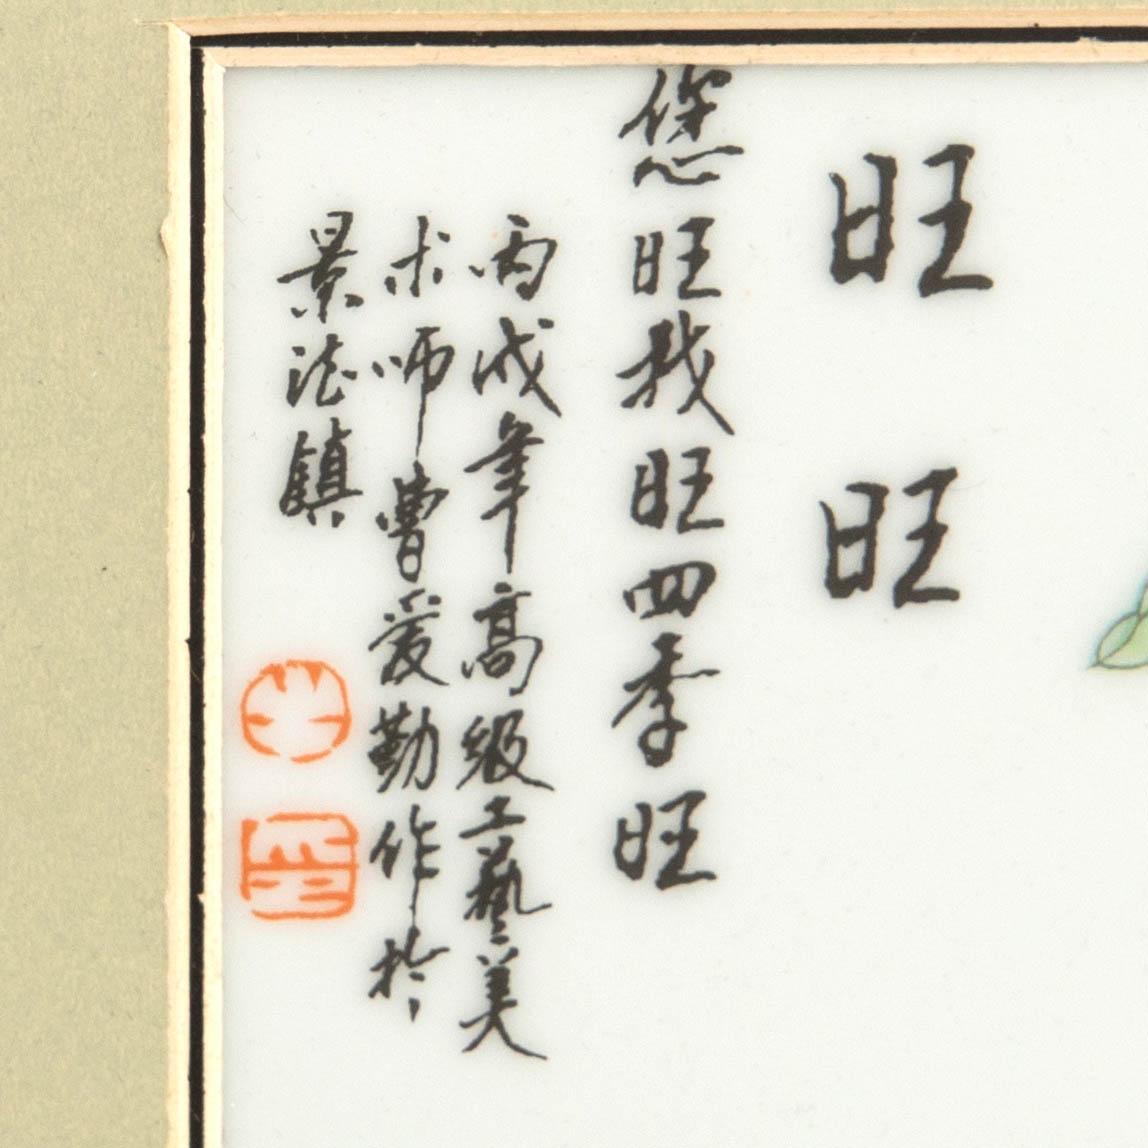 旺旺
您旺我旺四季旺
丙戌年高級工藝美
术师曹爱勤作於
景德镇